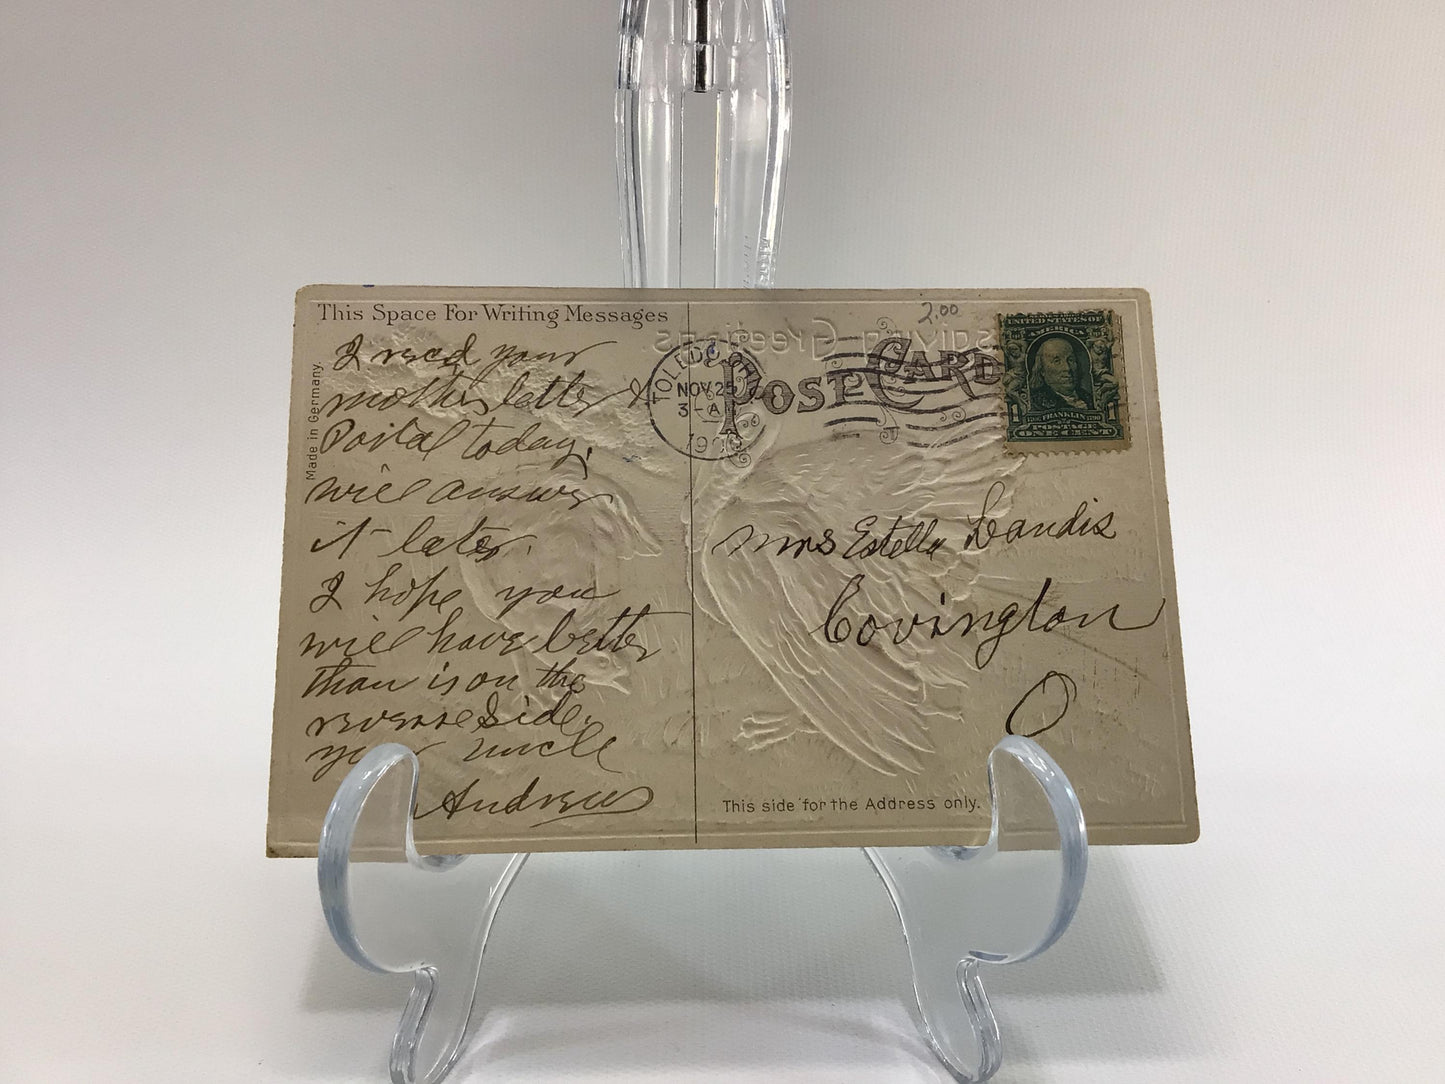 This Space For Writing Messages
Made in Germany.
I recd your
mothers letter &
Postal today,
will answer
it later.
I hope you
will have better
than is on the
reverse side.
your uncle
Andrew
2.00
Thanksgiving Greetings
POST CARD
TOLEDO, OHIO
NOV 25
3-A
190
UNITED STATES OF
AMERICA
1 1706 FRANKLIN 1790 1
POSTAGE
ONE CENT
Mrs Estella Landis
Covington
O
This side for the Address only.